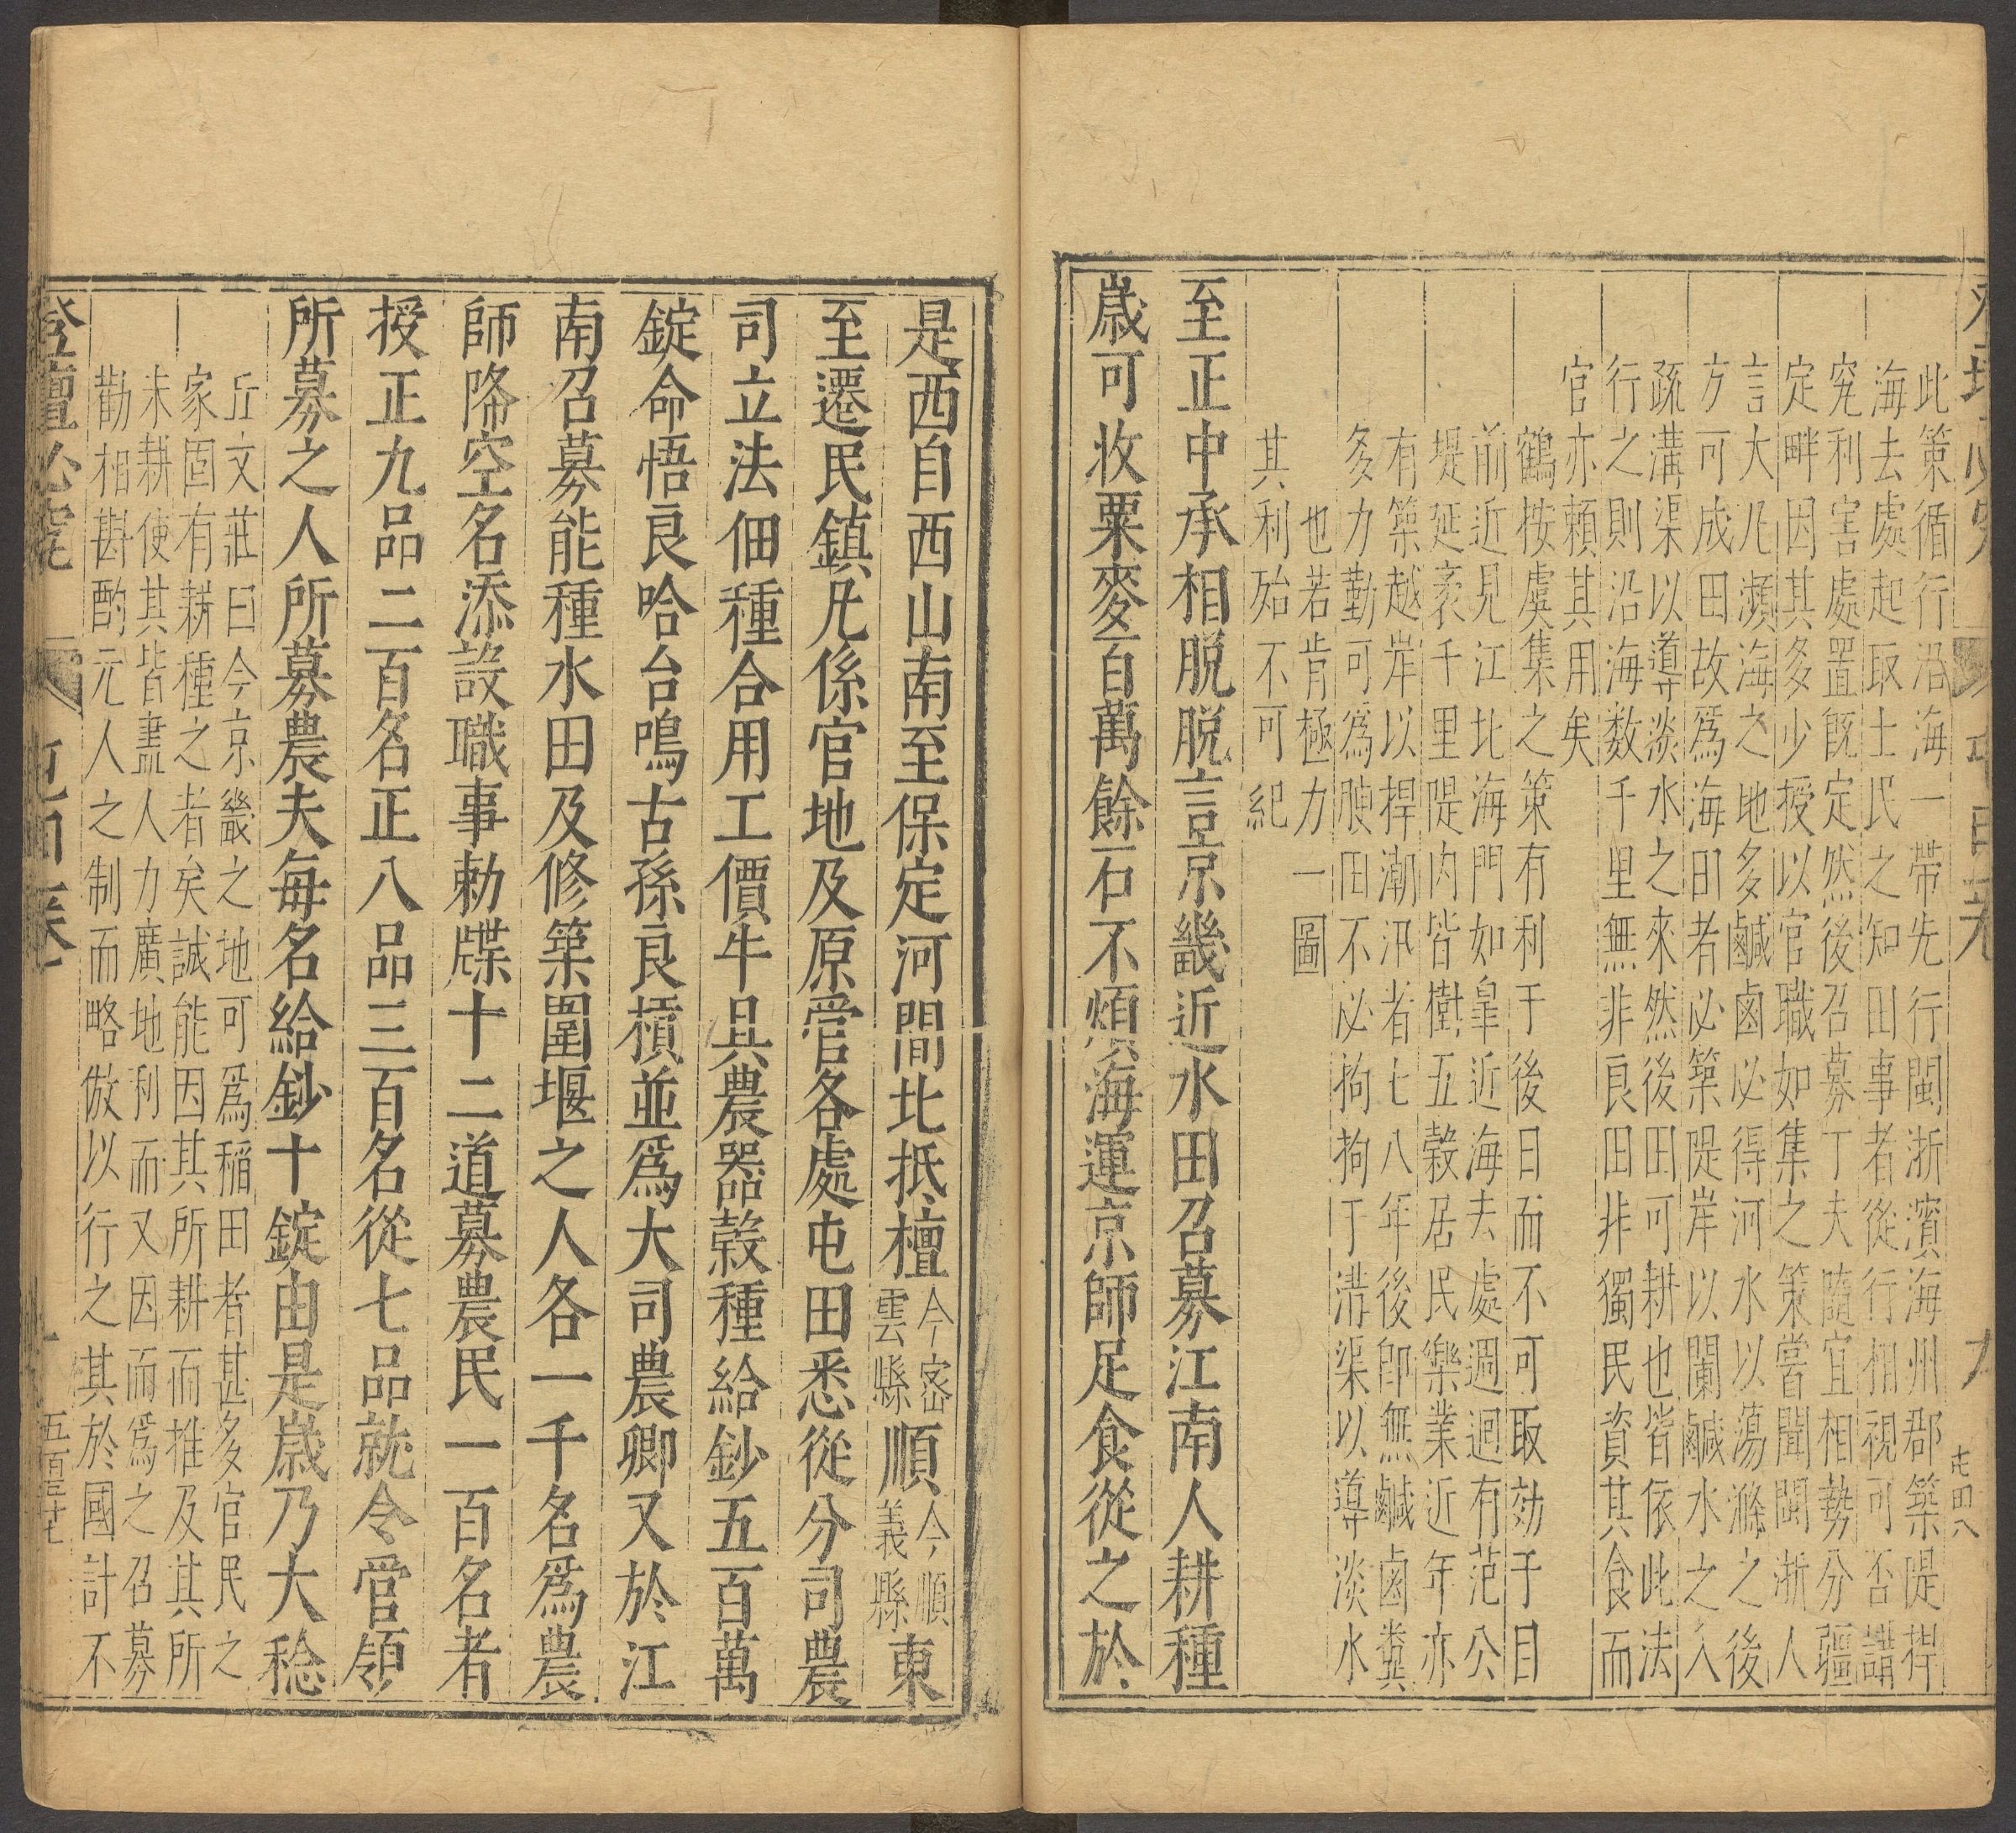 此策循行沿海一帶先行閩浙濱海州郡築隄捍
海去處起取土民之知田事者從行相視可否講
究利害處置既定然後召募丁夫隨宜相勢分疆
定畔因其多少授以官職如集之策嘗聞閩浙人
言大凡瀕海之地多鹹鹵必得河水以蕩滌之後
方可成田故爲海田者必築隄岸以闌鹹水之入
疏溝渠以導淡水之來然後田可耕也皆依此法
行之則沿海数千里無非良田非獨民資其食而
官亦賴其用矣
鶴按虞集之策有利于後日而不可取効于目
前近見江北海門如臯近海去處週迴有范公
堤延袤千里隄内皆樹五穀居民樂業近年亦
有築越岸以捍潮汛者七八年後卽無鹹鹵糞
多力勤可爲腴田不必拘拘于溝渠以導淡水
也若肯極力一圖
其利殆不可紀
至正中承相脱脱言京畿近水田召募江南人耕種
歲可收粟麥百萬餘石不煩海運京師足食從之於
屯田八
是西自西山南至保定河間北抵檀今密雲縣順今順義縣東
至遷民鎮凡係官地及原管各處屯田悉從分司農
司立法佃種合用工價牛具農器榖種給鈔五百萬
錠命悟良哈台嗚古孫良槓並爲大司農卿又於江
南召募能種水田及修築圍堰之人各一千名爲農
師降空名添設職事勅牒十二道募農民一百名者
授正九品二百名正八品三百名從七品就令管領
所募之人所募農夫每名給鈔十錠由是歲乃大稔
丘文莊曰今京畿之地可爲稲田者甚多官民之
家固有耕種之者矣誠能因其所耕而推及其所
未耕使其皆盡人力廣地利而又因而爲之召募
勸相斟酌元人之制而略倣以行之其於國計不
登壇必究 屯田 卷
五百三十七